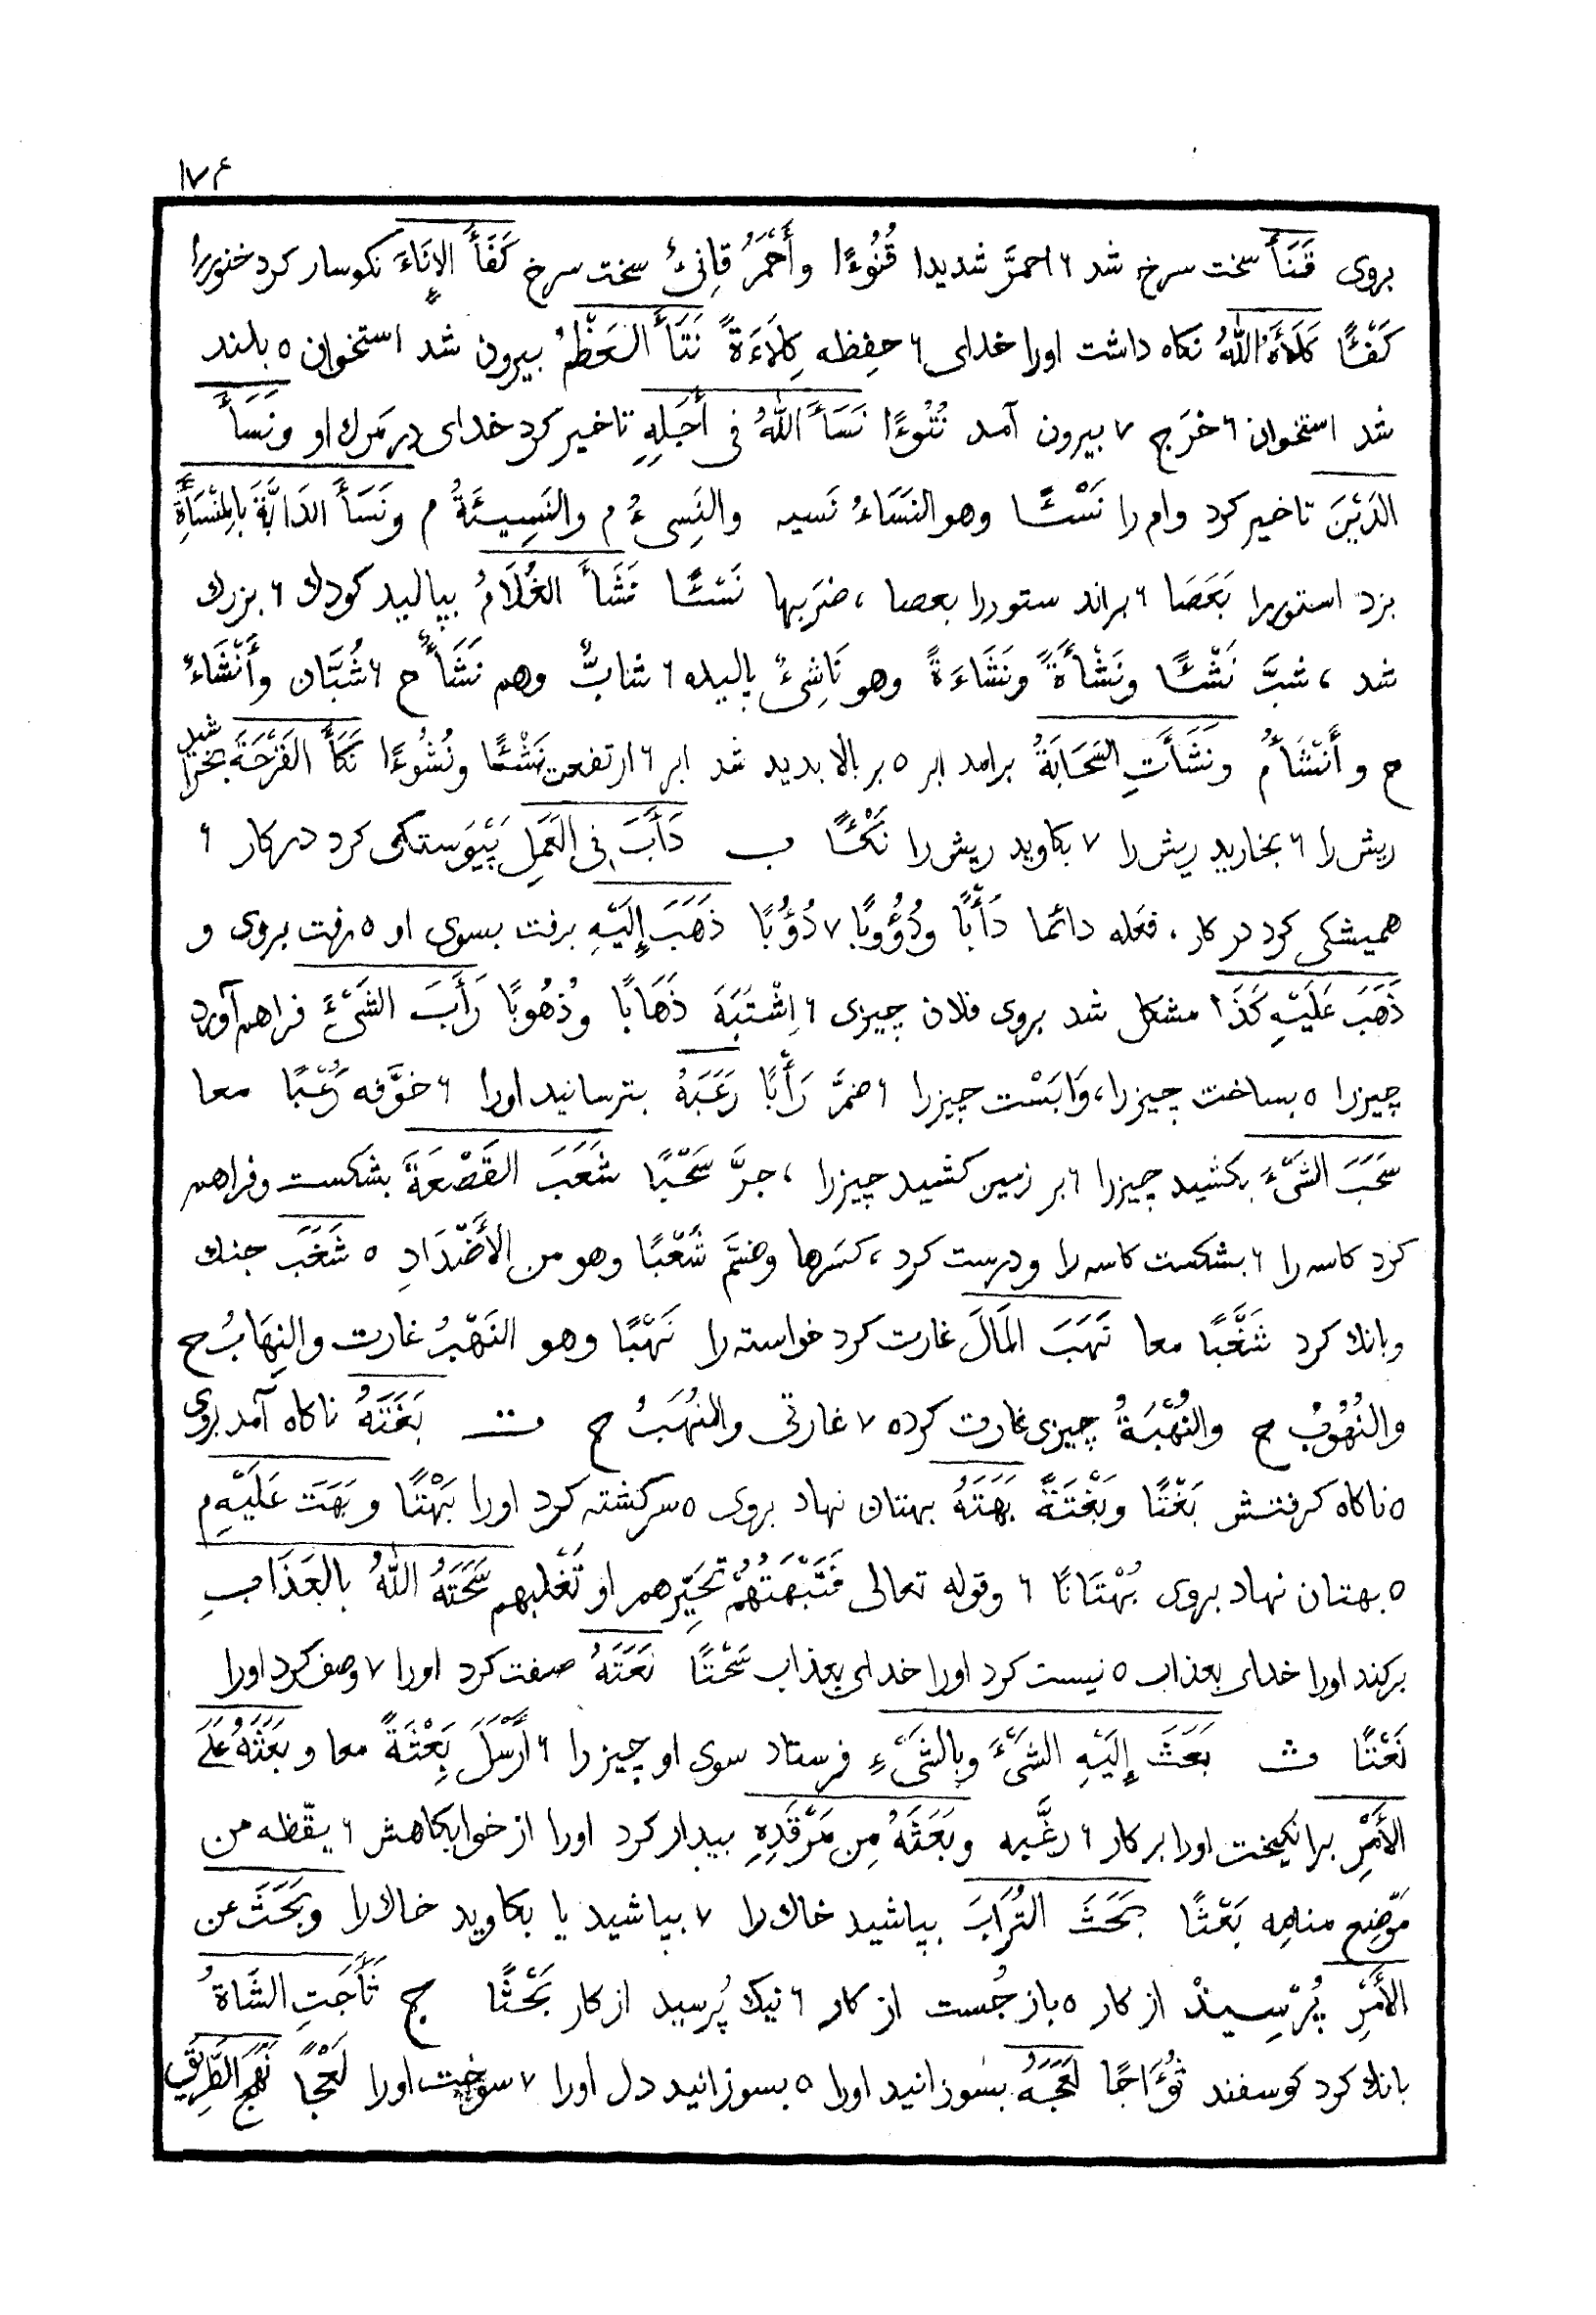 ۱۷۴
بروی قَنَأَ سخت سرخ شد ۶ احمرَّ شدیدا قُنُوءًا وأَحْمَرُ قانِئٌ سخت سرخ كَفَأَ الإِنَاءَ نکوسار کرد خنوررا
كَفْئًا كَلَأَهُ اللهُ نکاه داشت اورا خدای ۶ حِفظه كِلَاءَةً نَتَأَ العَظْمُ بیرون شد استخوان ۵ بلند
شد استخوان ۶ خَرَج ۷ بیرون آمد نُتُوءًا نَسَأَ اللهُ فی أَجَلِهِ تاخیر کرد خدای در مَرك او ونَسَأَ
الدَيْنَ تاخیر کرد وام را نَسْئًا وهو النَسَاءُ نَسیه والنَسِیءُ م والنَسِيئَةُ م ونَسَأَ الدَابَّةَ بِالمِنْسَأَةِ
بزد استوررا بَعَصَا ۶ براند ستوررا بعصا ، ضرَبها نَسْئًا نَشَأَ الغُلَامُ ببالید کودك ۶ بزرك
شد ، شبَّ نَشْئًا ونَشْأَةً ونَشَاءَةً وهو نَاشِئٌ بالیده ۶ شابٌّ وهم نَشَأٌ ح ۶ شُبَّان وأَنْشَاءٌ
ح و أَنْشَأُمُ ونَشَأَتِ السَحَابَةُ برامد ابر ۵ بر بالا بدید شد ابر ۶ ارتفعت نَشْئًا ونُشُوءًا نَكَأَ القَرْحَةَ بخراشید
ریش را ۶ بخارید ریش را ۷ بکاوید ریش را نَكْئًا ب دَأَبَ فی العَمَلِ پَیْوَستکی کرد در کار ۶
همیشکی کرد در کار ، فعَله دائما دَأْبًا ودُؤُوبًا ۷ دُؤُبًا ذَهَبَ إِلَيْهِ برفت بسوی او ۵ رفت بروی و
ذَهَبَ عَلَيْهِ كَذَا مشکل شد بروی فلان چیزی ۶ اِشْتَبَهَ ذَهَابًا وذُهُوبًا رَأَبَ الشَیْءَ فراهم آورد
چیزرا ۵ بساخت چیزرا ، وَابَسْت چیزرا ۶ ضمَّ رَأْبًا رَعَبَهُ بترسانید اورا ۶ خوَّفه رُعْبًا معا
سَحَبَ الشَیْءَ بکشید چیزرا ۶ بر زمین کشید چیزرا ، جرَّ سَحْبًا شَعَبَ القَصْعَةَ بشکست وفراهم
کرد کاسه را ۶ بشکست کاسه را ودرست کرد ، کسَرها وضمَّ شَعْبًا وهو من الأَضْدَادِ ۵ شَغَبَ جنك
وبانك کرد شَغْبًا معا نَهَبَ المَالَ غارت کرد خواسته را نَهْبًا وهو النَهْبُ غارت والنِهَابُ ح
والنُهُوبُ ح والنُهْبَةُ چیزی غارت کرده ۷ غارتی والنُهَبُ ح ت بَغَتَهُ ناکاه آمد بروی
۵ ناکاه کرفتش بَغْتًا وبَغْتَةً بَهَتَهُ بهتان نهاد بروی ۵ سرکشته کرد اورا بَهْتًا وبَهَتَ عَلَيْهِ م
۵ بهتان نهاد بروی بُهْتَانًا ۶ وقوله تعالی فَتَبْهَتُهُمْ تحَیِّرهم او تَغْلبهم سَحَتَهُ اللهُ بالعَذَابِ
برکند اورا خدای بعذاب ۵ نیست کرد اورا خدای بعذاب سَحْتًا نَعَتَهُ صفت کرد اورا ۷ وصف کرد اورا
نَعْتًا ث بَعَثَ إِلَيْهِ الشَیْءَ وبِالشَیْءِ فرستاد سوی او چیزرا ۶ أَرْسَلَ بَعْثَةً معا وبَعَثَهُ عَلَى
الأَمْرِ برانکیخت اورا بر کار ۶ رغَّبه وبَعَثَهُ مِن مَرْقَدِهِ بیدار کرد اورا از خوابکاهش ۶ یقّظه من
مَوْضِع منامه بَعْثًا بَحَثَ التُرَابَ بپاشید خاك را ۷ بپاشید یا بکاوید خاك را وبَحَثَ عن
الأَمْرِ پُرْسِیذ از کار ۵ باز جُست از کار ۶ نیك پُرسید از کار بَحْثًا ج ثَأَجَتِ الشَاةُ
بانك کرد کوسفند ثُؤَاجًا لَعَجَهُ بسوزانید اورا ۵ بسوزانید دل اورا ۷ سوخت اورا لَعْجًا نَهَجَ الطَرِيقَ